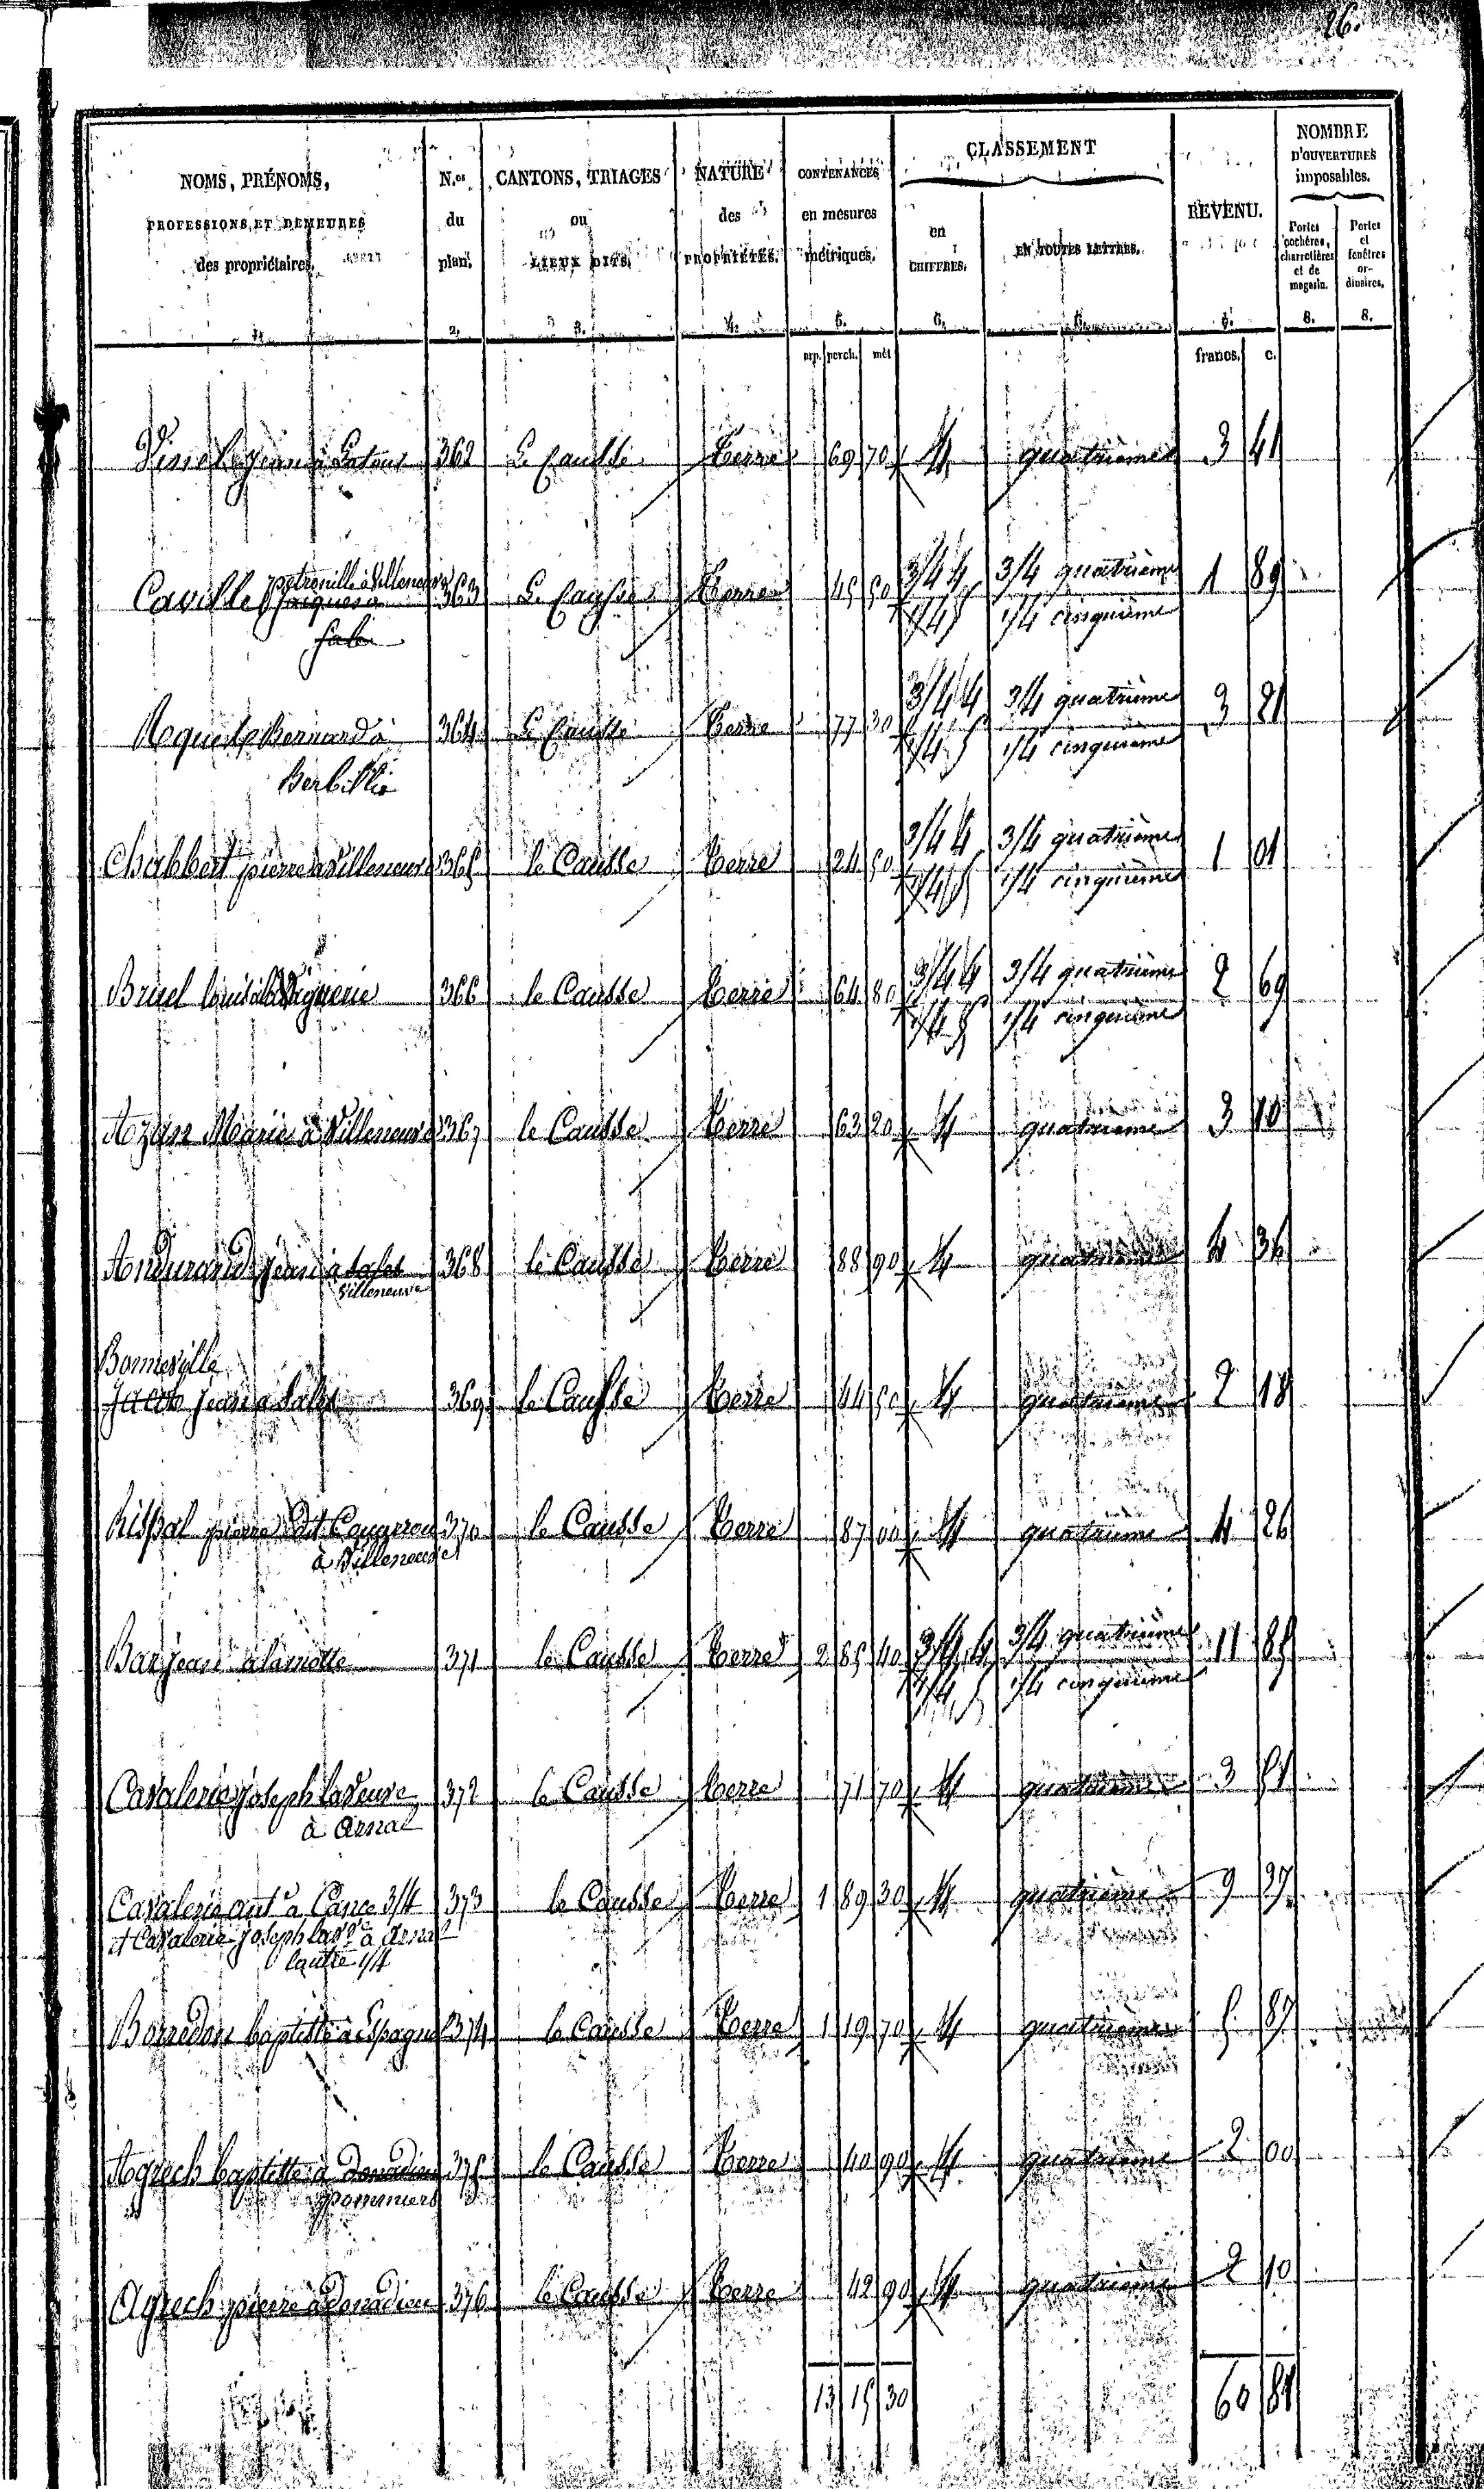 26.
NOMS, PRÉNOMS, PROFESSIONS ET DEMEURES des propriétaires.
N.os du plan.
CANTONS, TRIAGES ou LIEUX DITS.
NATURE des PROPRIÉTÉS.
CONTENANCES en mesures métriques.
CLASSEMENT
en CHIFFRES.
EN TOUTES LETTRES.
REVENU.
NOMBRE D'OUVERTURES imposables.
Portes cochères, charretières et de magasin.
Portes et fenêtres ordinaires.
1. 2. 3. 4. 5. 6. 6. 7. 8. 8.
arp. perch. mèt francs. c.
jean à 362 Le Causse Terre 69 70 4 quatrième 3 41
petronille à Villeneuve
Caville Jacques à 363 Le Causse Terre 45 50 3/4 4 3/4 quatrième 1 89
1/4 5 1/4 cinquième
Bernard à 364 Le Causse Terre 77 30 3/4 4 3/4 quatrième 3 21
1/4 5 1/4 cinquième
Chabbert pierre à Villeneuve 365 le Causse Terre 24 50 3/4 4 3/4 quatrième 1 01
1/4 5 1/4 cinquième
Bruel louis 366 le Causse Terre 64 80 3/4 4 3/4 quatrième 2 69
1/4 5 1/4 cinquième
Marie à Villeneuve 367 le Causse Terre 63 20 4 quatrième 3 10
Andurand jean à Sales 368 le Causse Terre 88 90 4 quatrième 4 36
Villeneuve
Bonneville
jean à Sales 369 le Causse Terre 44 50 4 quatrième 2 18
Rispal pierre dit 370 le Causse Terre 87 00 4 quatrième 4 26
à Villeneuve
Bar jean à lamotte 371 le Causse Terre 2 85 40 3/4 4 3/4 quatrième 11 85
1/4 5 1/4 cinquième
Cavalerie joseph la veuve 372 le Causse Terre 71 70 4 quatrième 3 51
à Arnal
Cavalerie ant.e à Cance 3/4 373 le Causse Terre 1 89 30 4 quatrième 9 27
et Cavalerie joseph la v.e à Arnal
lautre 1/4
Borredon baptiste à Espagnol 374 le Causse Terre 1 19 70 4 quatrième 5 87
Agrech baptiste à donadieu 375 le Causse Terre 40 90 4 quatrième 2 00
pommiers
Agrech pierre à donadieu 376 le Causse Terre 42 90 4 quatrième 2 10
13 15 30 60 81